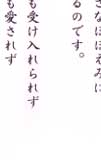 さなほほえみに
るのです。
も受け入れられず
も愛されず